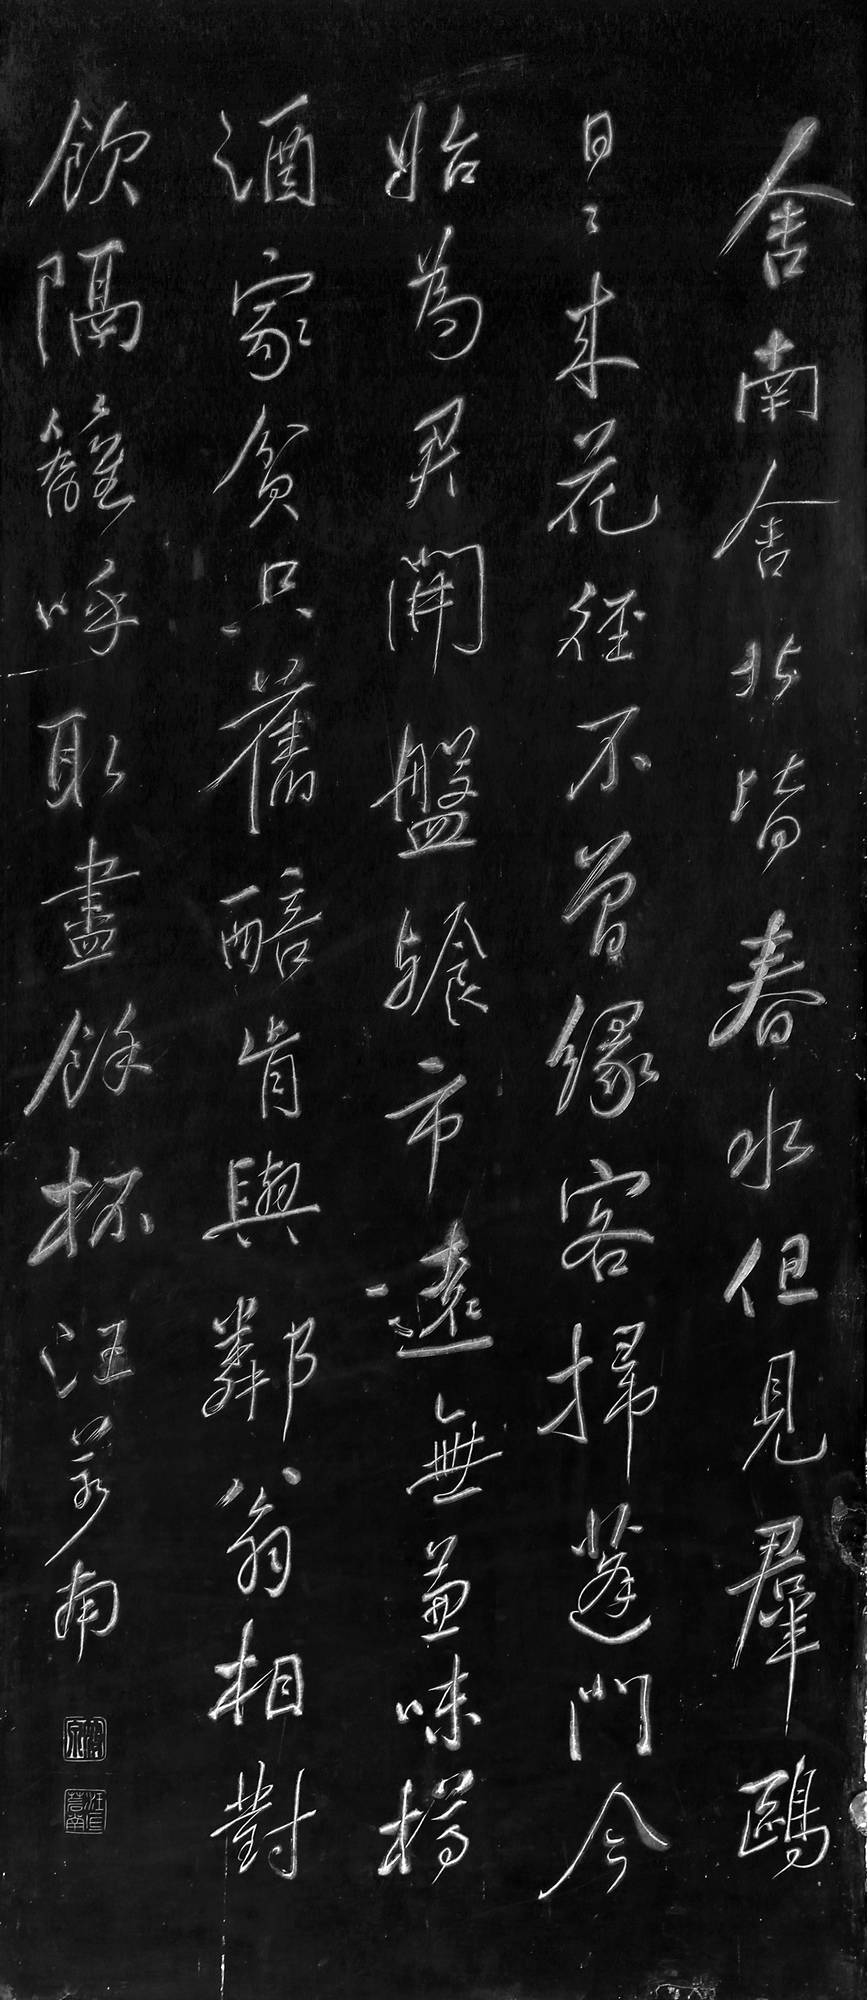 舍南舍北皆春水但見羣鷗
日〻來花徑不曾緣客掃蓬門今
始為君開盤飱市遠無兼味樽
酒家貧只舊醅肯與鄰翁相對
飲隔籬呼取盡餘杯汪若南